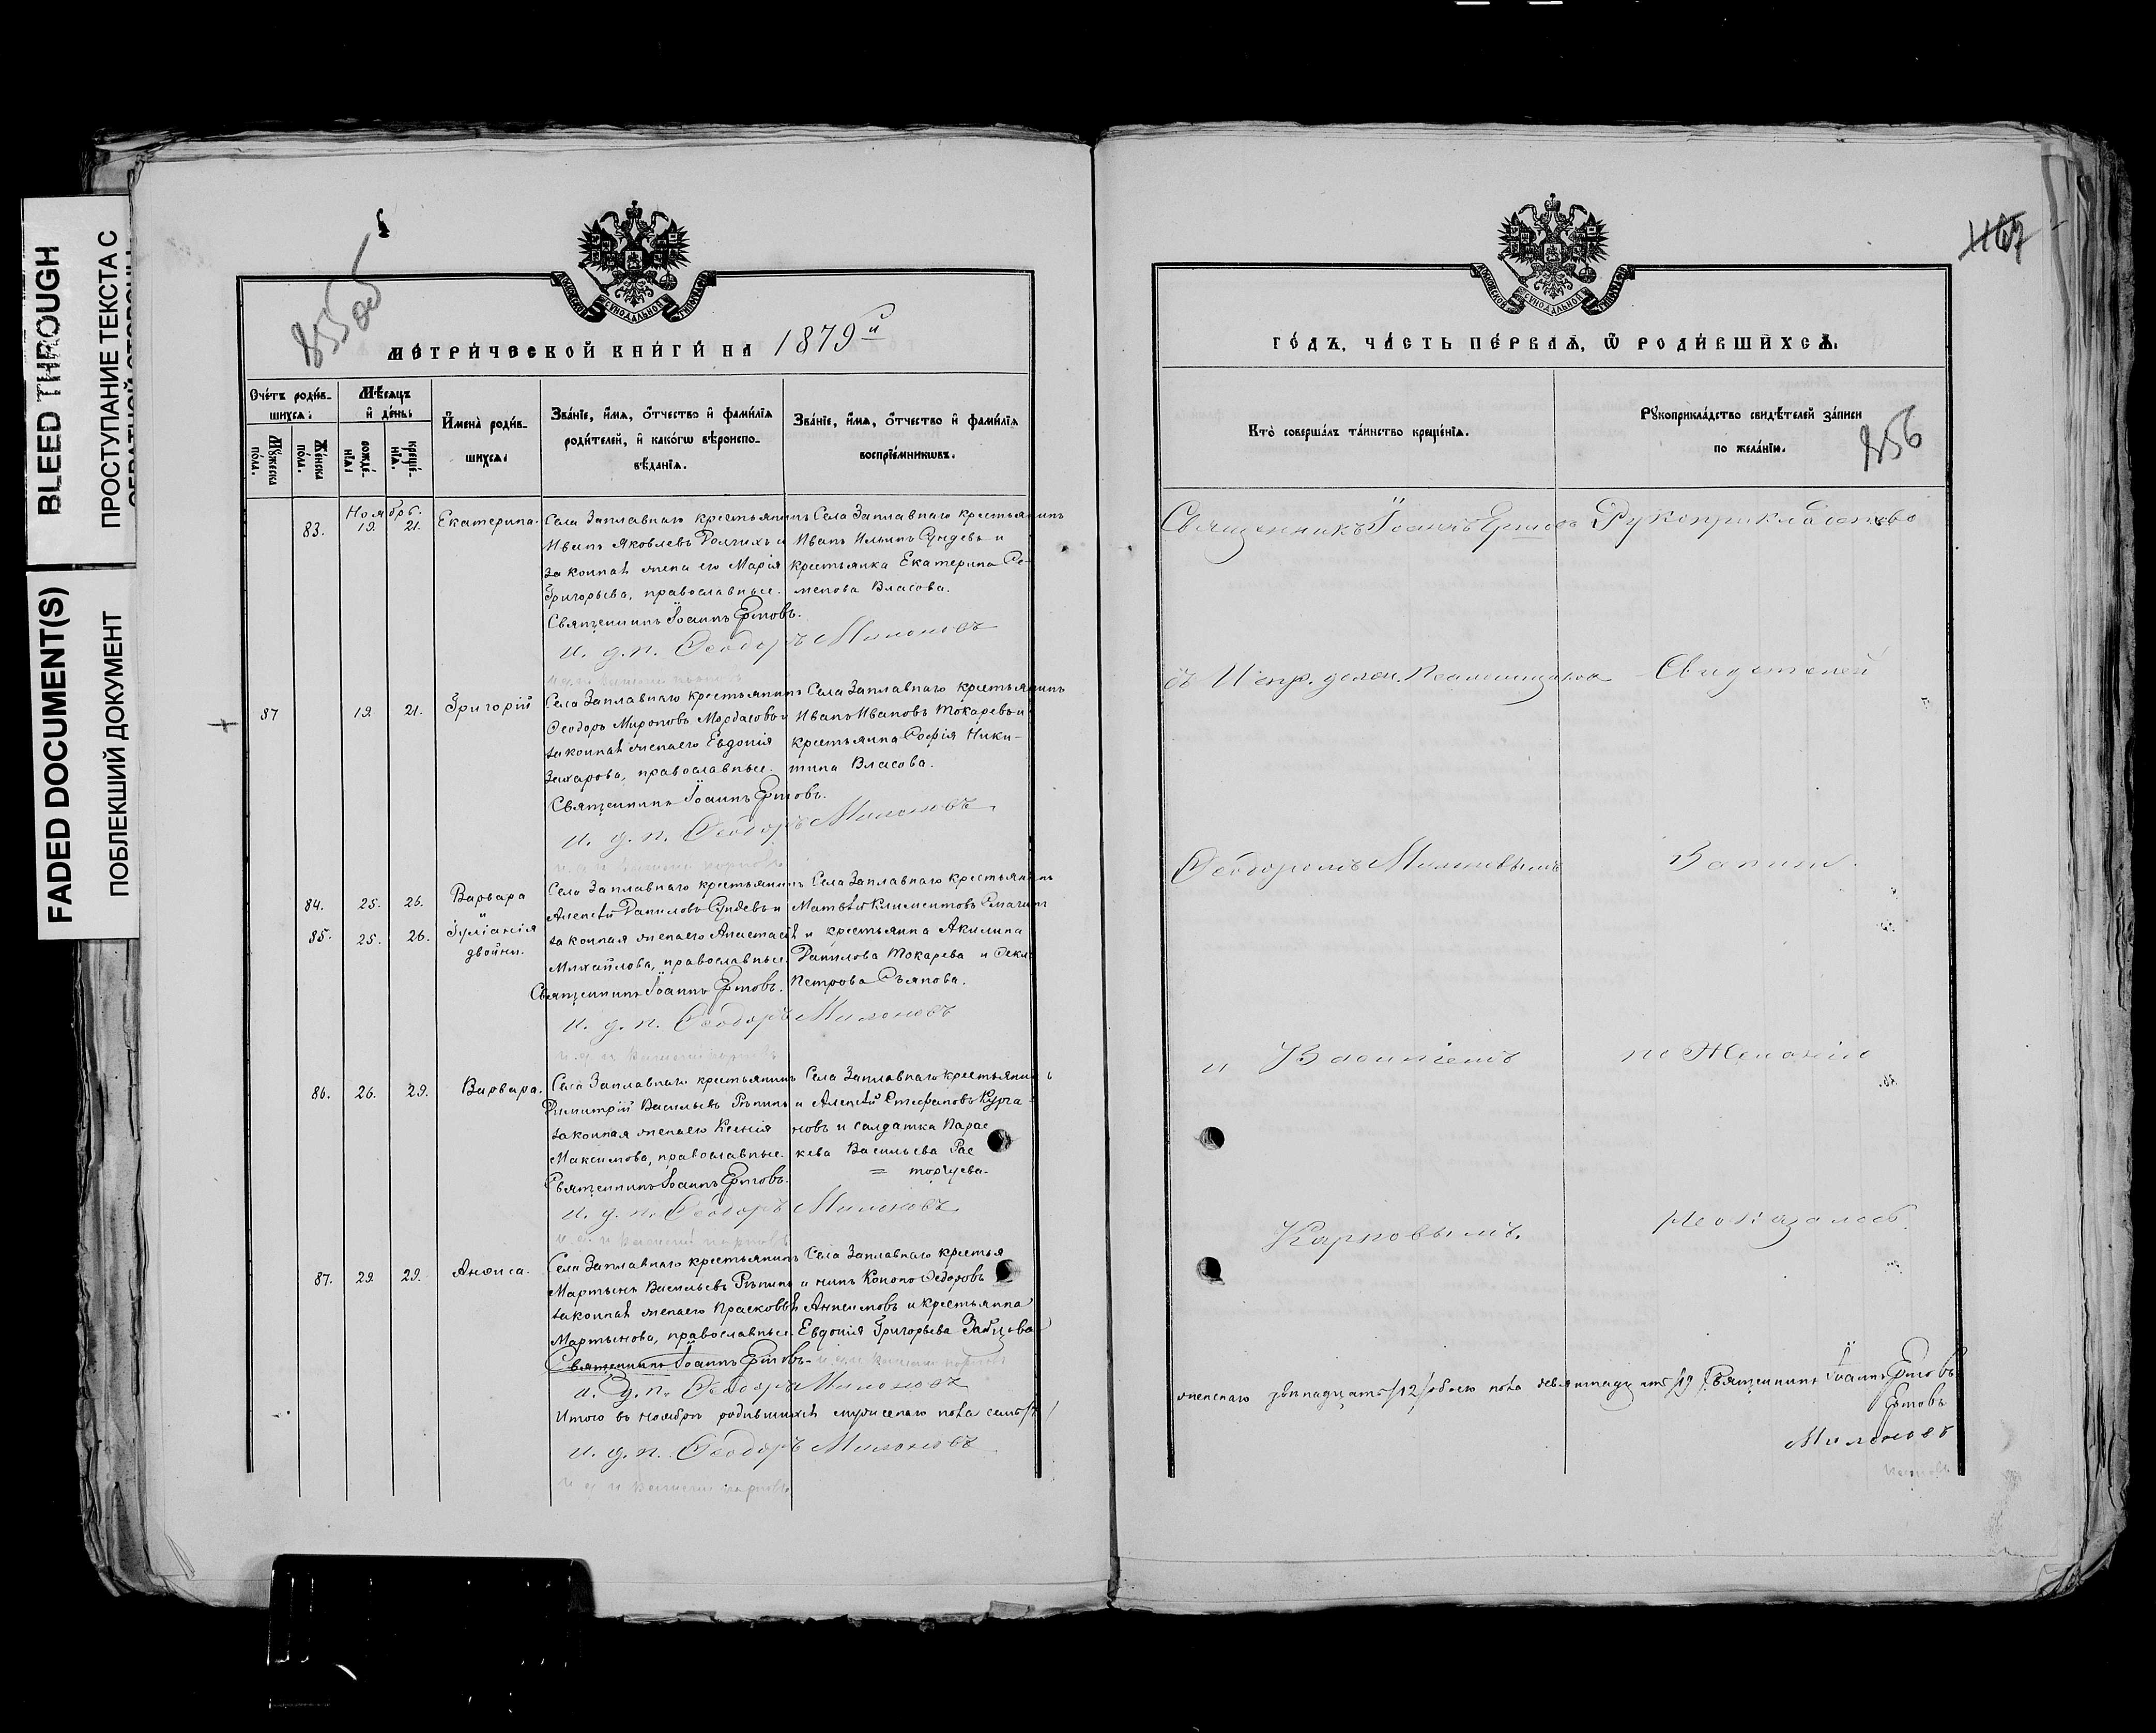 BLEED THROUGH
ПРОСТУПАНИЕ ТЕКСТА С
ОБРАТНОЙ СТОРОНЫ
FADED DOCUMENT(S)
ПОБЛЕКШИЙ ДОКУМЕНТ
855 об
МЕТРИ́ЧЕСКОЙ КНИ́ГИ НА 1879й
Сче́тъ роди́в-
шихся:
Мꙋжеска
по́ла.
Же́нска
по́ла.
Мѣ́сяцъ
и҆ де́нь:
рожде́-
нїя:
креще́-
нїя.
И҆мена̀ роди́в-
шихся:
Зва́нїе, и҆́мя, ѻ҆́тчество и҆ фами́лїя
роди́телей, и҆ како́гѡ вѣроиспо-
вѣ́данїя.
Зва́нїе, и҆́мя, ѻ҆́тчество и҆ фами́лїя
воспрїе́мникѡвъ.
Ноябрь.
83.
19. 21.
Екатерина.
Села Заплавнаго крестьянинъ
Иванъ Яковлевъ Долгихъ и
законная жена его Марія
Григорьева, православные.
Священникъ Іоаннъ Ермовъ.
И. д. п. Ѳеодоръ Милоновъ
Села Заплавнаго крестьянинъ
Иванъ Ильинъ Сундевъ и
крестьянка Екатерина Се-
менова Власова.
87
19. 21.
Григорій
Села Заплавнаго крестьянинъ
Ѳеодоръ Мироновъ Мордасовъ и
законная жена его Евдокія
Захарова, православные.
Священникъ Іоаннъ Ермовъ.
И. д. п. Ѳеодоръ Милоновъ.
Села Заплавнаго крестьянинъ
Иванъ Ивановъ Токаревъ и
крестьянка Софія Ники-
тина Власова.
84. 25. 26.
85. 25. 26.
Варвара
и
Іуліанія
двойни.
Села Заплавнаго крестьянинъ
Алексѣй Даниловъ Сундевъ и
законная жена его Анастасія
Михайлова, православные.
Священникъ Іоаннъ Ермовъ.
И. д. п. Ѳеодоръ Милоновъ
Села Заплавнаго крестьянинъ
Матвѣй Климентовъ
и крестьянка Акилина
Данилова Токарева и
Петрова
86. 26. 29.
Варвара.
Села Заплавнаго крестьянинъ
Димитрій Васильевъ Рѣпинъ и
законная жена его Ксенія
Максимова, православные.
Священникъ Іоаннъ Ермовъ.
И. д. п. Ѳеодоръ Милоновъ
Села Заплавнаго крестьянинъ
Алексѣй Стефановъ Курга-
новъ и солдатка Парас
кева Васильева Рас
= торгуева.
87. 29. 29.
Анѳиса.
Села Заплавнаго крестьянинъ
Мартынъ Васильевъ Рѣпинъ и
законная жена его Прасковья
Мартынова, православные.
Священникъ Іоаннъ Ермовъ.
И. д. п. Ѳеодоръ Милоновъ
Села Заплавнаго крестья
нинъ Кононъ Ѳедоровъ
Анисимовъ и крестьянка
Евдокія Григорьева
Итого въ ноябрѣ родившихся мужескаго пола семь /7/
И. д. п. Ѳеодоръ Милоновъ
ГО́ДЪ, ЧА́СТЬ ПЕ́РВАЯ, Ѽ РОДИ́ВШИХСЯ.
856
Кто̀ соверша́лъ та́инство креще́нїя.
Рꙋкоприкла́дство свидѣ́телей за́писи
по жела́нїю.
Священникъ Іоаннъ Ермовъ
Рукоприкладство
съ Испр. долж. Псаломщика
Свидѣтелей
Ѳеодоромъ Милоновымъ
Записи
и Василіемъ
по Желанію
Карповымъ.
Не оказалось.
женскаго двѣнадцать /12/ обоего пола девятнадцать /19/ Священникъ Іоаннъ Ермовъ
Ермовъ
Милоновъ